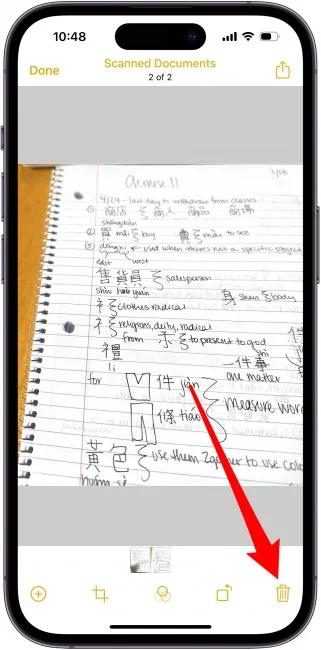 10:48
Done
Scanned Documents
2 of 2
Chinese 11
4/24 - last day to withdraw from classes
① 商店 商人 商品 商場
shāngdiàn
② 買 mǎi buy 賣 mài to sell
③ dōngxi used when there's not a specific object
east west
售貨員 salesperson
shòu huò yuán
身 shēn body
衤 clothes radical
礻 religions, deity, radical
from 示 to present to god
禮
lǐ
shì
一件事
one matter
for 件 jiàn
measure word
條 tiáo
黃色 use them 2gether to use
huáng sè